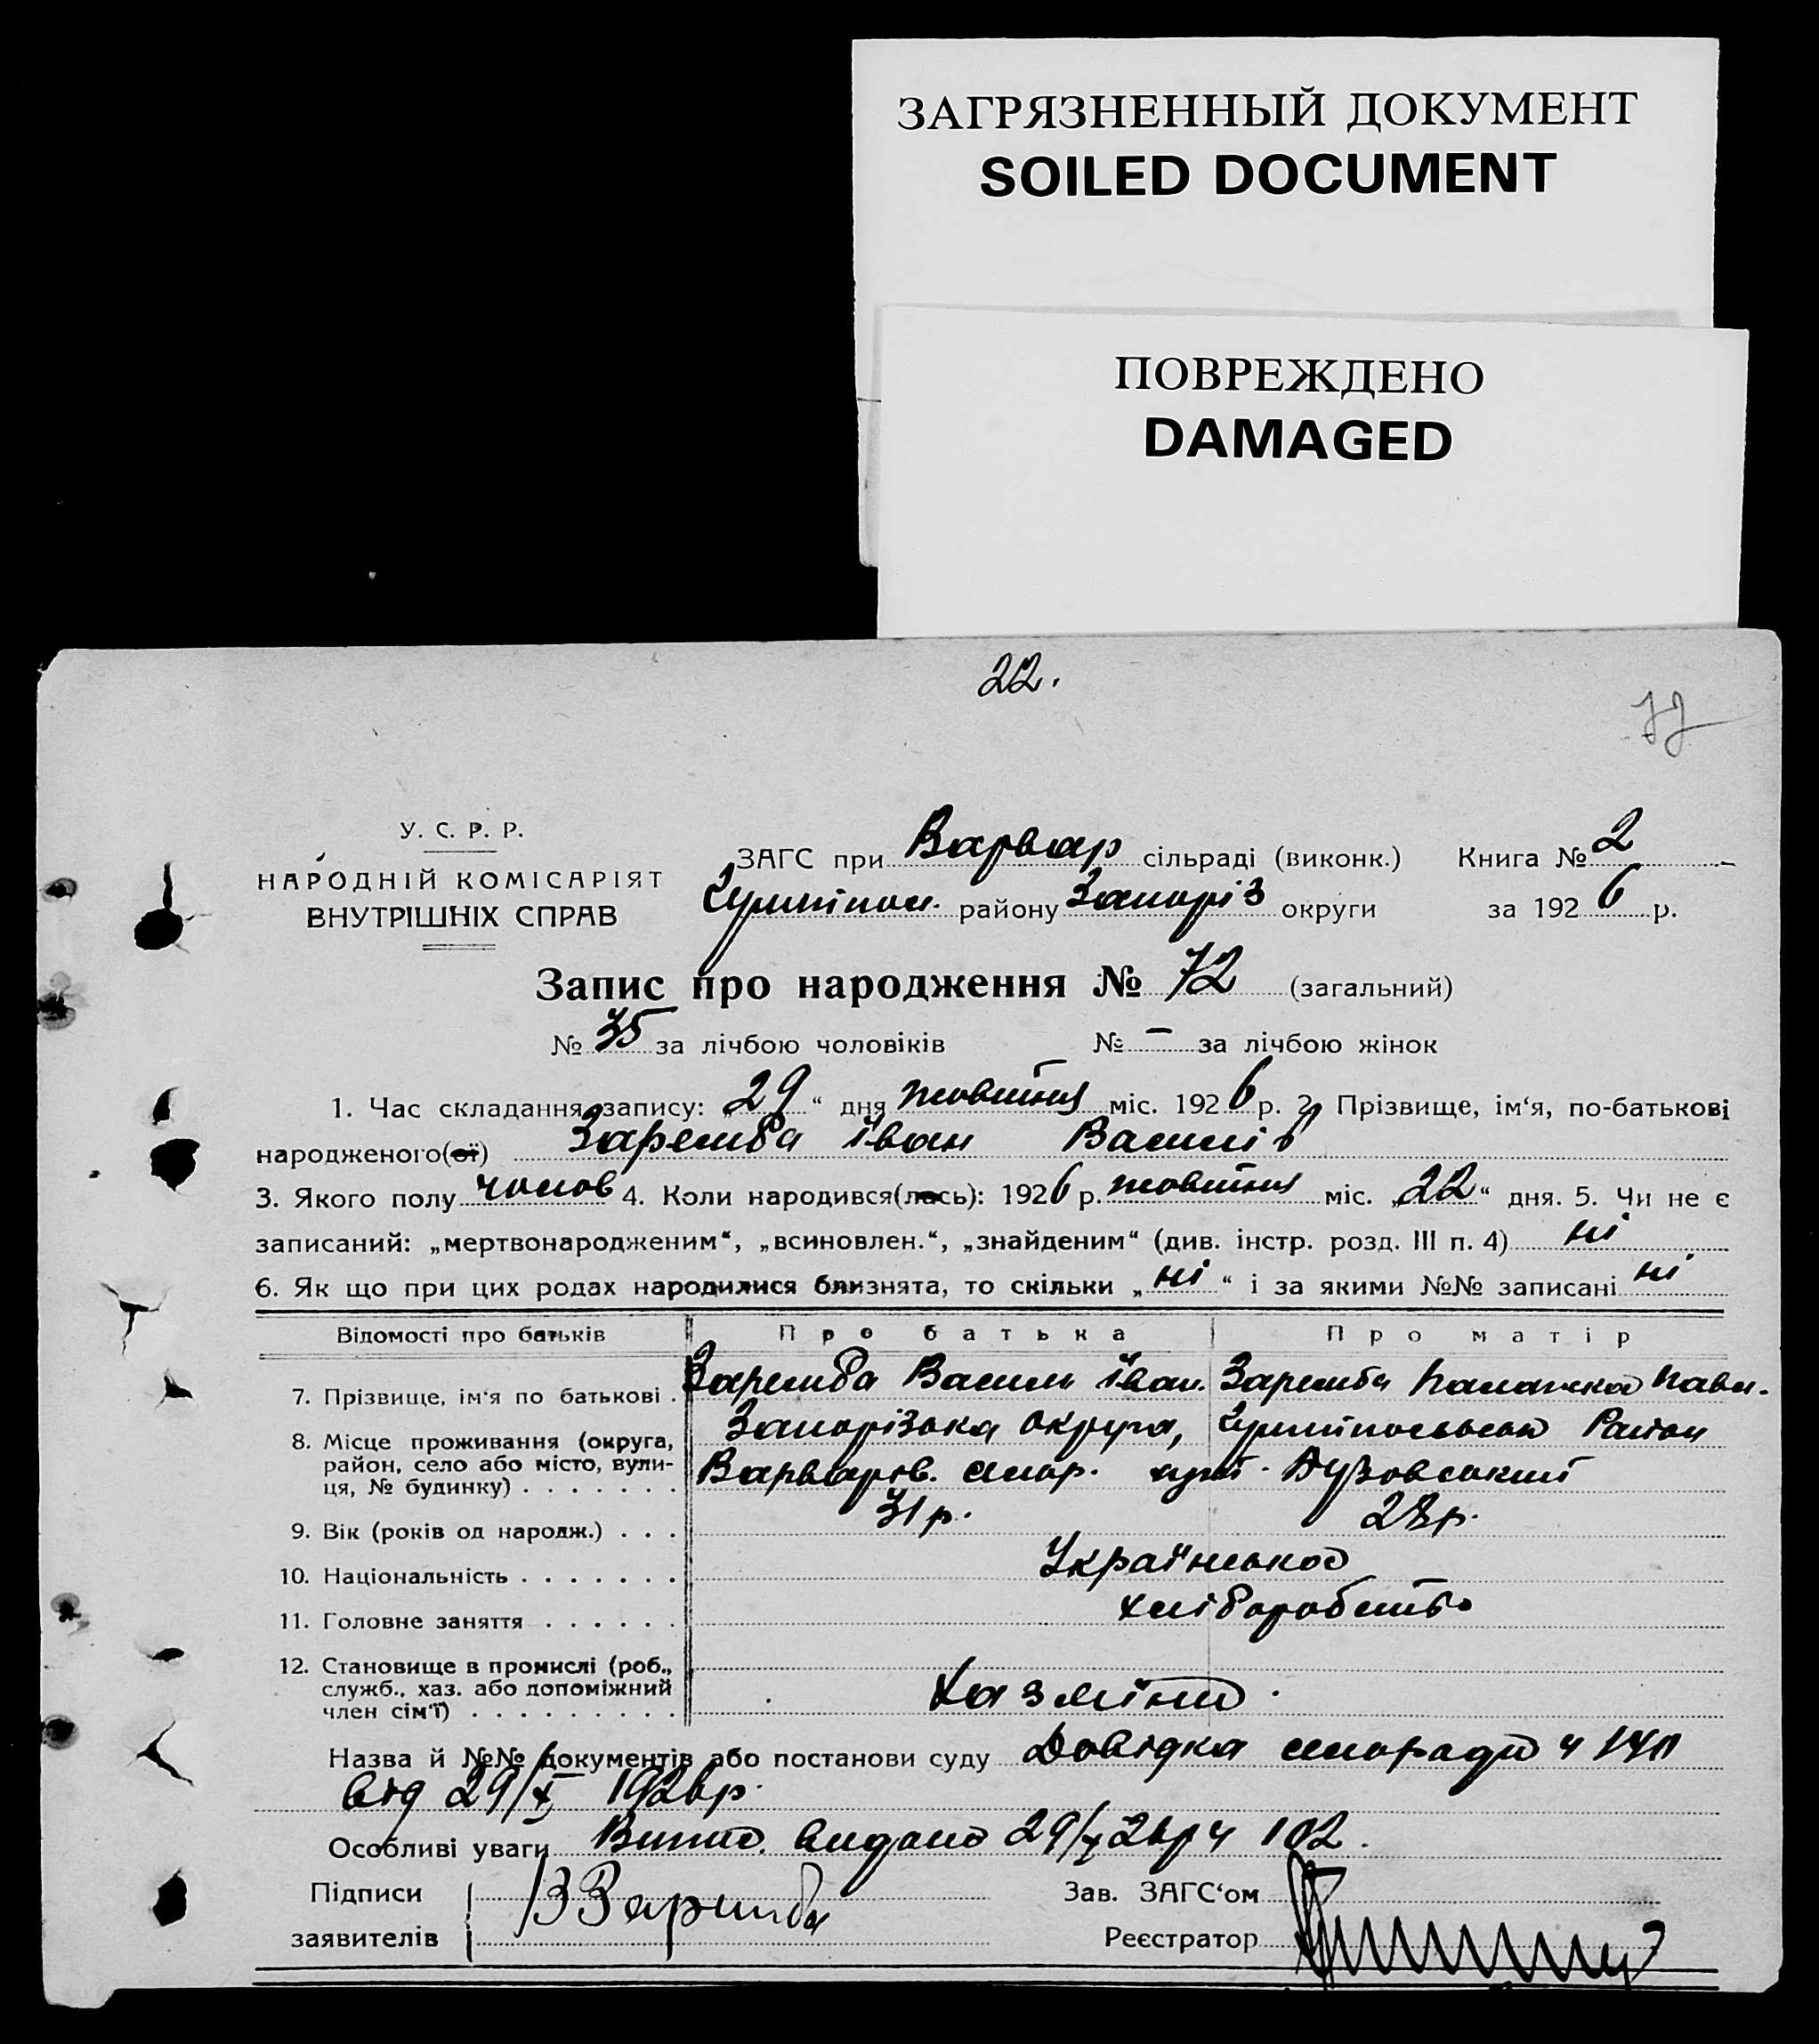 ЗАГРЯЗНЕННЫЙ ДОКУМЕНТ
SOILED DOCUMENT
ПОВРЕЖДЕНО
DAMAGED
22.
У. С. Р. Р.
НАРОДНІЙ КОМІСАРІЯТ
ВНУТРІШНІХ СПРАВ
ЗАГС при Варвар сільраді (виконк.) Книга № 2
району Запоріз округи за 1926 р.
Запис про народження № 72 (загальний)
№ 35 за лічбою чоловіків № – за лічбою жінок
1. Час складання запису: 29 “ дня жовтня міс. 1926 р. 2. Прізвище, ім‘я, по-батькові
народженого(ої) Заремба Іван Василів
3. Якого полу чолов 4. Коли народився(лась): 1926 р. жовтня міс. „22“ дня. 5. Чи не є
записаний: „мертвонародженим“, „всиновлен.“, „знайденим“ (див. інстр. розд. III п. 4) ні
6. Як що при цих родах народилися близнята, то скільки „ні“ і за якими №№ записані ні
Відомості про батьків Про батька Про матір
7. Прізвище, ім‘я по батькові . Заремба Василь Іван. Заремба Палажка Павл.
8. Місце проживання (округа, район, село або місто, вулиця, № будинку) . . . . . . . Запорізька округа, Район
Варварів. сільр. хут.
9. Вік (років од народж.) . . . 31 р. 28 р.
10. Національність . . . . . . . Українська
11. Головне заняття . . . . . . хліборобство
12. Становище в промислі (роб., служб., хаз. або допоміжний член сім‘ї) . . . . . . . . .
Назва й №№ документів або постанови суду Довідка сільради ч 140
від 29/X 1926р.
Особливі уваги Витяг. видано 29/X 26р ч 102.
Підписи
заявителів ВЗаримба
Зав. ЗАГС‘ом
Реєстратор